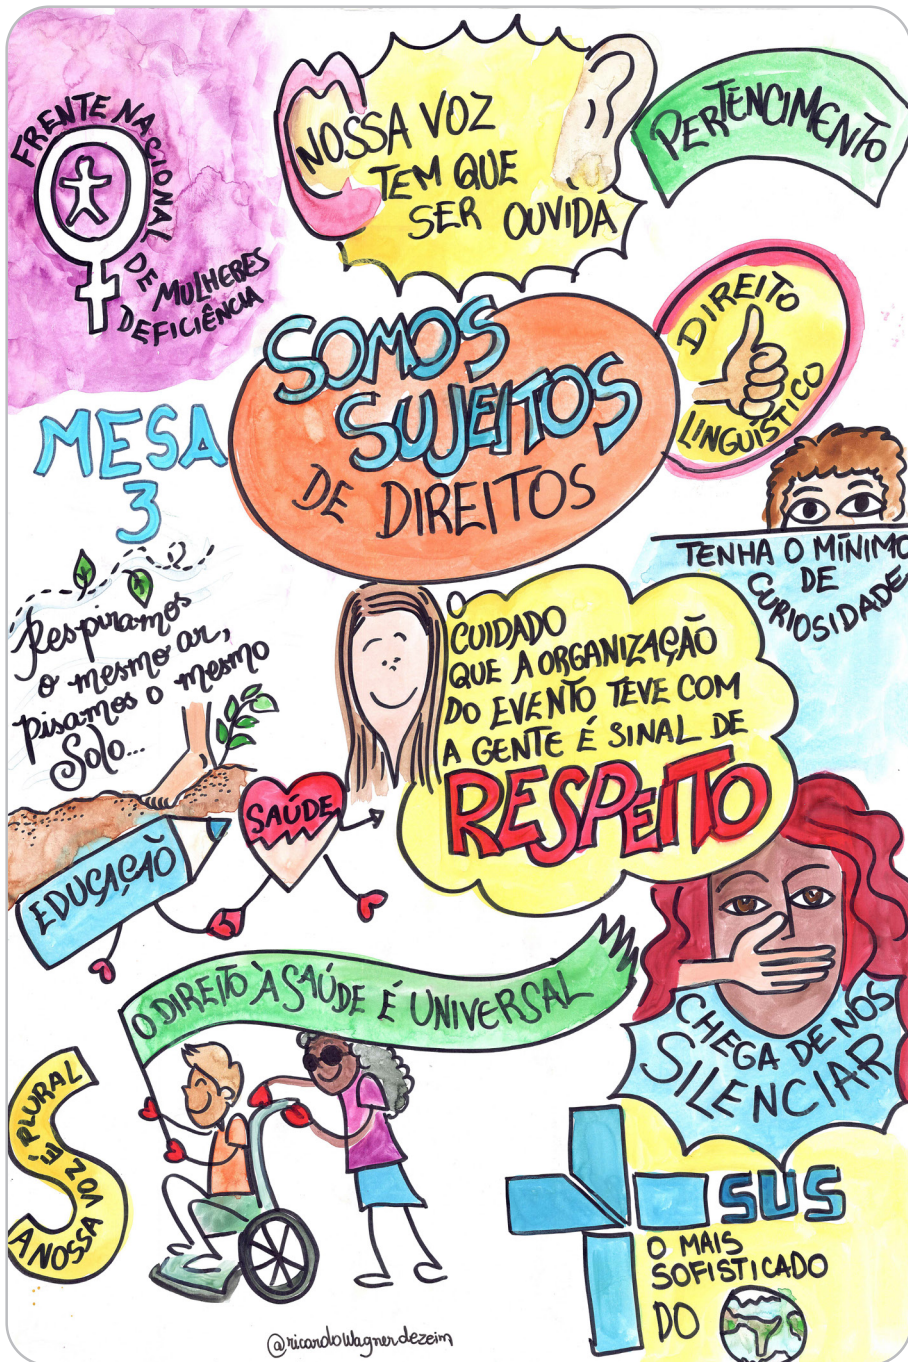 FRENTE NACIONAL DE
MULHERES
DEFICIÊNCIA
NOSSA VOZ
TEM QUE
SER OUVIDA
PERTENCIMENTO
DIREITO
LINGUÍSTICO
SOMOS
SUJEITOS
DE DIREITOS
MESA
3
TENHA O MÍNIMO
DE
CURIOSIDADE
Respiramos
o mesmo ar,
pisamos o mesmo
Solo...
O
CUIDADO
QUE A ORGANIZAÇÃO
DO EVENTO TEVE COM
A GENTE É SINAL DE
RESPEITO
SAÚDE
EDUCAÇÃO
O DIREITO À SAÚDE É UNIVERSAL
CHEGA DE NOS
SILENCIAR
A NOSSA VOZ É PLURAL
SUS
O MAIS
SOFISTICADO
DO
@ricardowagnerdezein